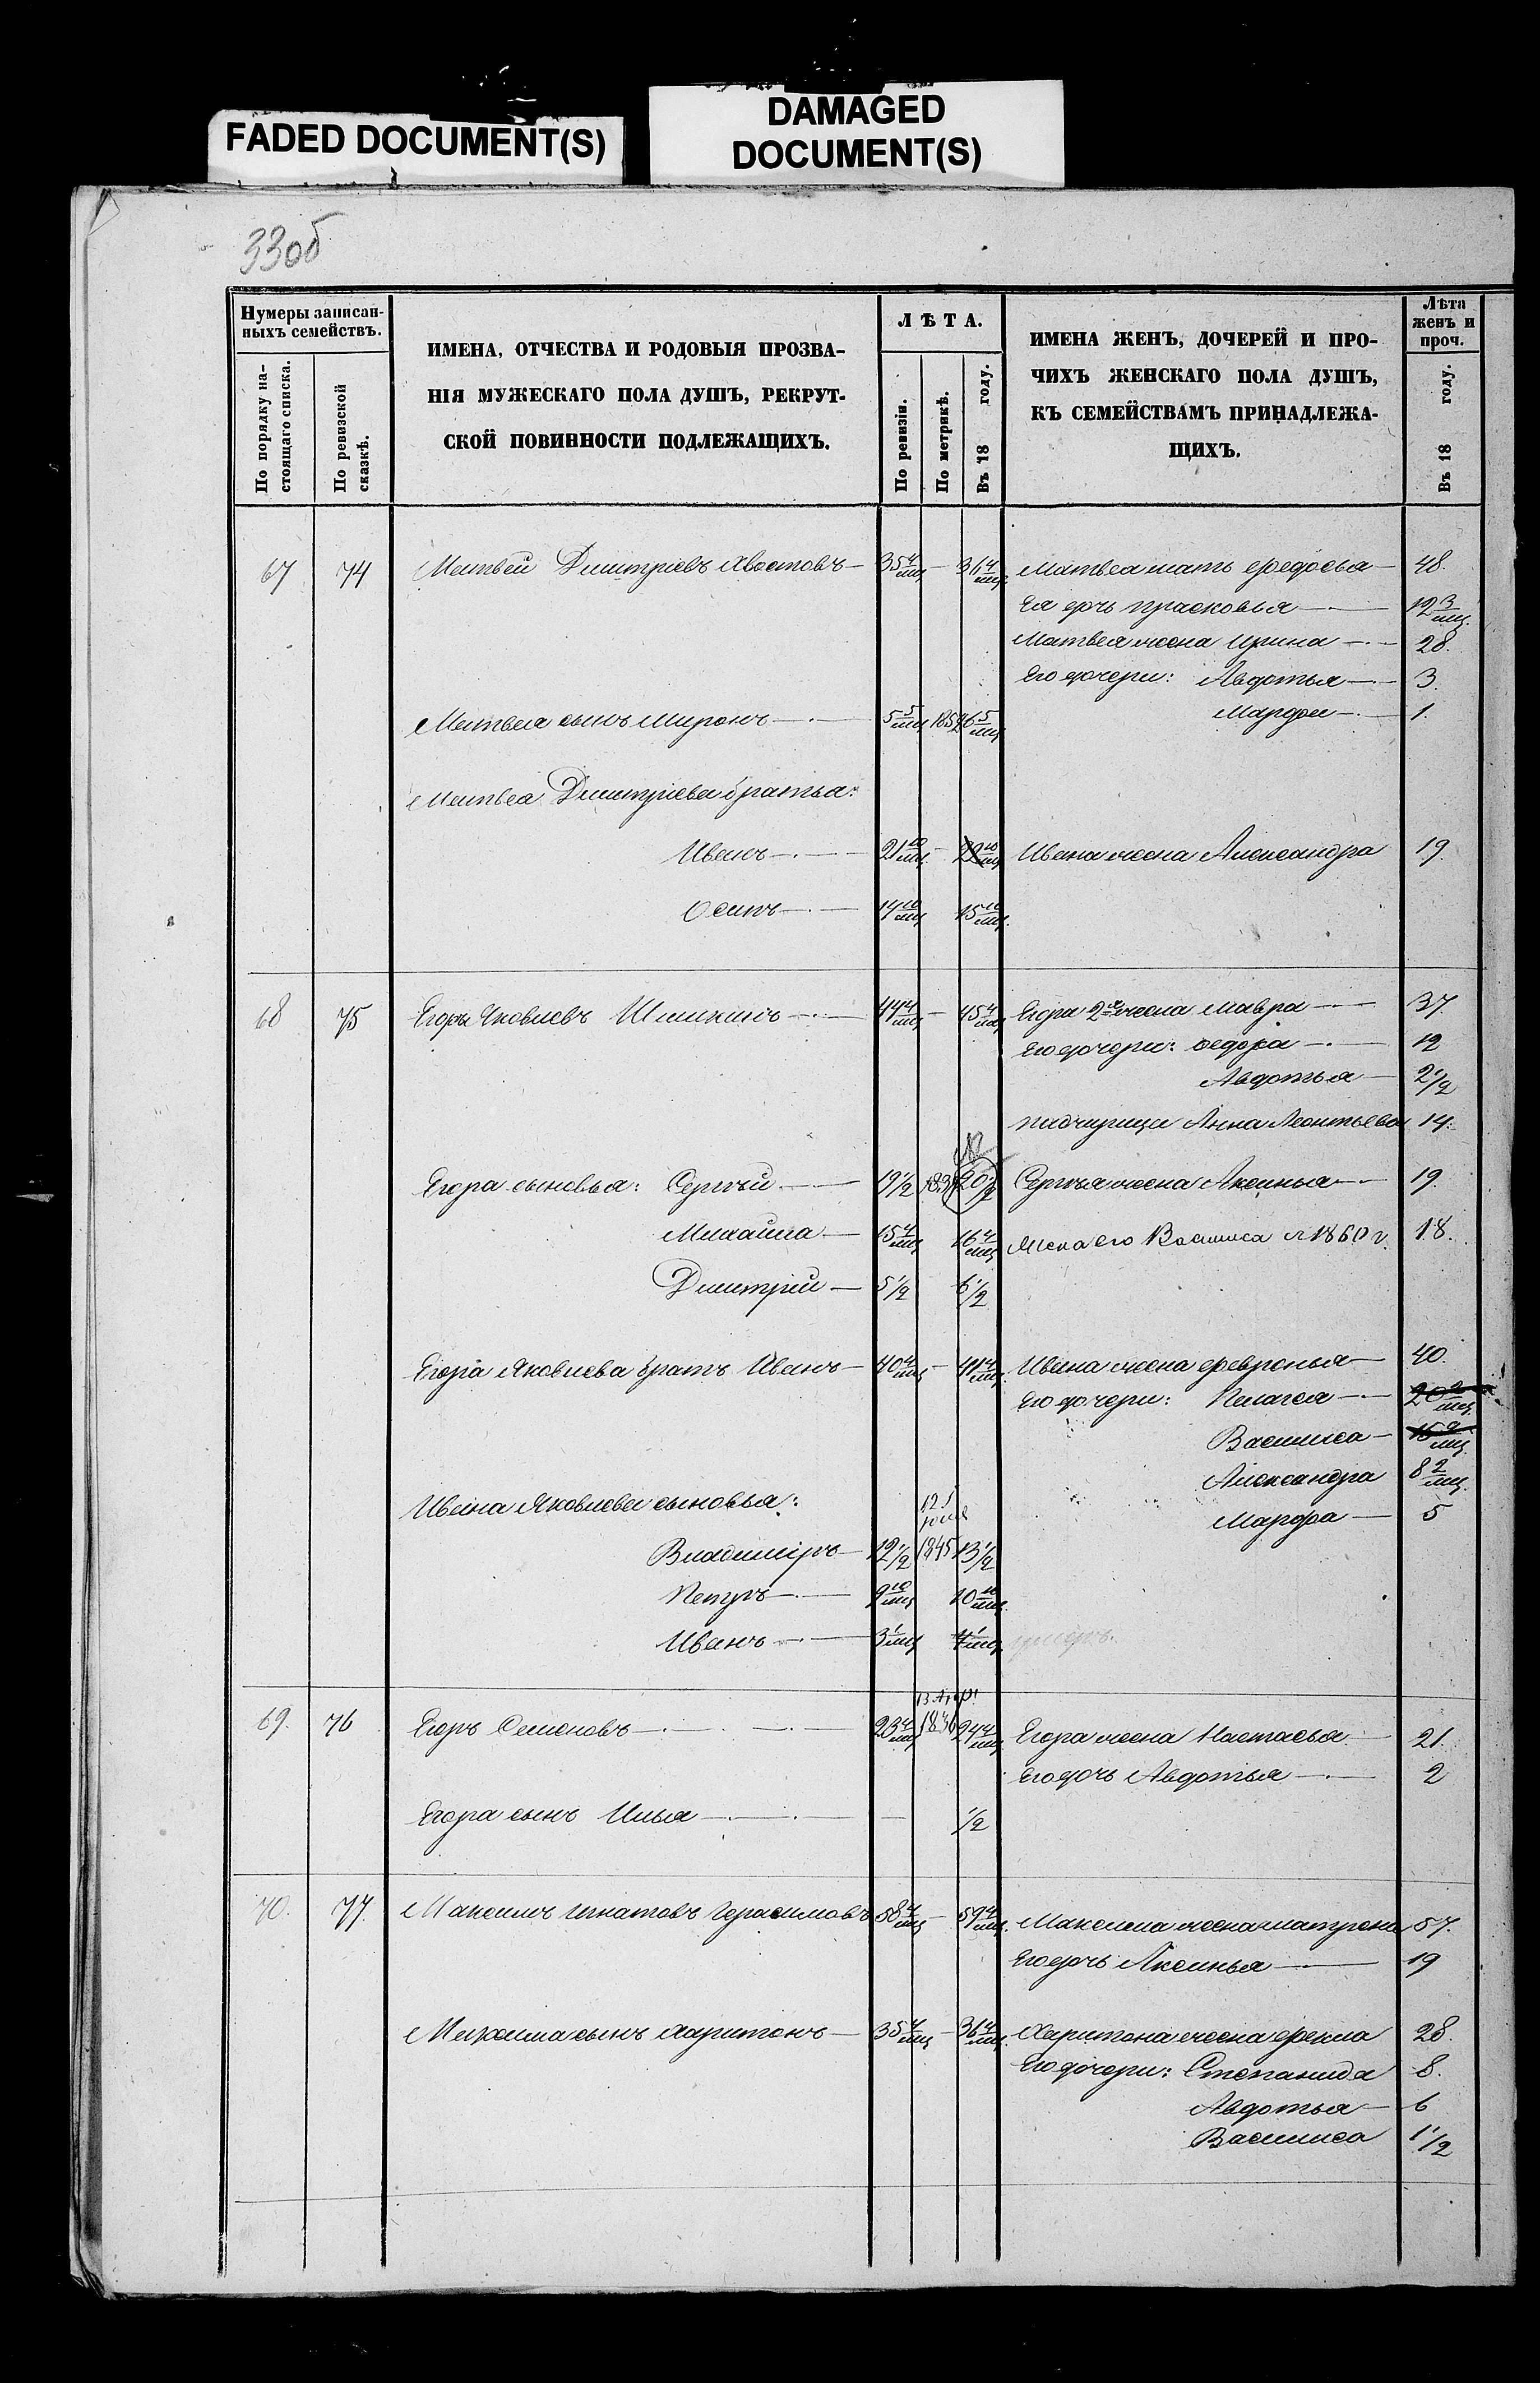 FADED DOCUMENT(S)
DAMAGED
DOCUMENT(S)
33об
Нумеры записан-
ныхъ семействъ.
По порядку на-
стоящаго списка.
По ревизской
сказкѣ.
ИМЕНА, ОТЧЕСТВА И РОДОВЫЯ ПРОЗВА-
НІЯ МУЖЕСКАГО ПОЛА ДУШЪ, РЕКРУТ-
СКОЙ ПОВИННОСТИ ПОДЛЕЖАЩИХЪ.
ЛѢТА.
По ревизіи.
По метрикѣ.
Въ 18 году.
ИМЕНА ЖЕНЪ, ДОЧЕРЕЙ И ПРО-
ЧИХЪ ЖЕНСКАГО ПОЛА ДУШЪ,
КЪ СЕМЕЙСТВАМЪ ПРИНАДЛЕЖА-
ЩИХЪ.
Лѣта
женъ и
проч.
Въ 18 году.
67 74 Матвей Дмитріевъ Хвостовъ — 35 4/мц — 36 4/мц. Матвея мать Ѳедосья — 48.
Ея дочь Прасковья — 12 3/мц.
Матвея жена Ирина — 28.
Его дочери: Авдотья — 3.
Матвея сынъ Миронъ — 5 5/мц 1852 6 5/мц Марфа — 1.
Матвея Дмитріева братья:
Иванъ — 21 10/мц — 22 10/мц Ивана жена Александра 19.
Осипъ — 14 10/мц 15 10/мц.
68 75 Егоръ Яковлевъ Шишкинъ — 44 4/мц — 45 4/мц Егора 2я жена Мавра — 37.
Его дочери: Ѳедора — 12
Авдотья — 2 1/2
падчерица Анна Леонтьева 14.
Егора сыновья: Сергѣй — 19 1/2 20 1/2 Сергѣя жена Аксинья — 19.
Михайла — 15 4/мц 16 4/мц Жена его Василиса с 1860 г. 18.
Дмитрій — 5 1/2 6 1/2
Егора Яковлева братъ Иванъ — 40 4/мц — 41 4/мц. Ивана жена Ѳевронья — 40.
Его дочери: Пелагея — 20 2/мц.
Василиса — 15 2/мц.
Александра 8 2/мц.
Ивана Яковлева сыновья: Марфа — 5
Владиміръ — 12 1/2 1845 13 1/2
Петръ — 9 10/мц 10 10/мц.
Иванъ — 3 1/мц 4 1/мц. умеръ.
69. 76 Егоръ Семеновъ — 23 4/мц 1836 24 4/мц. Егора жена Настасья — 21.
Его дочь Авдотья — 2
Егора сынъ Илья — — 1/2
70. 77. Максимъ Игнатовъ Герасимовъ 58 4/мц — 59 4/мц. Максима жена Матрена 57.
Его дочь Аксинья — 19
Максима сынъ Харитонъ — 35 4/мц — 36 4/мц. Харитона жена Ѳекла 28.
Его дочери: Степанида 8.
Авдотья — 6
Василиса 1 1/2